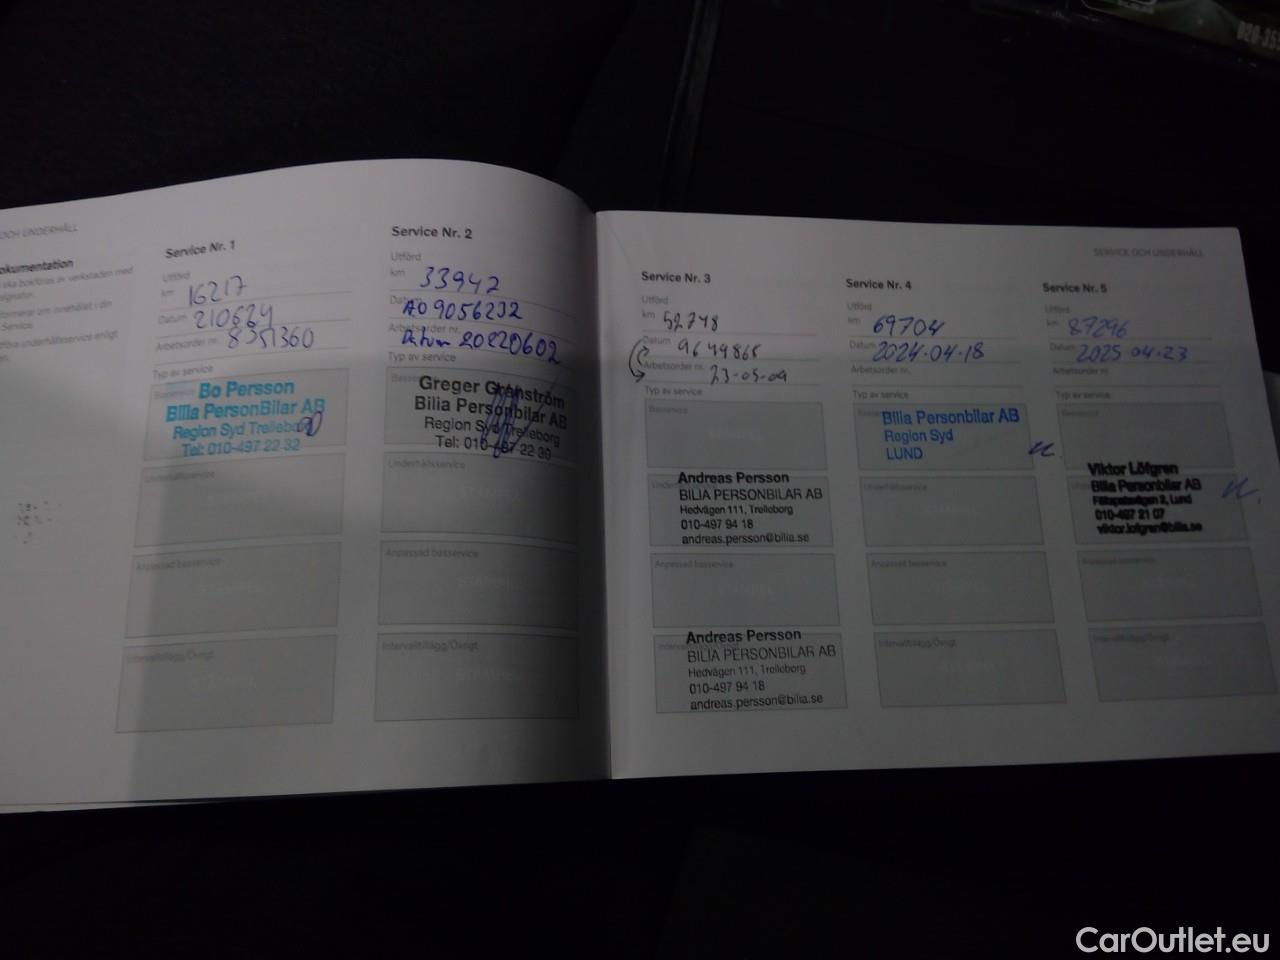 OCH UNDERHÅLL
okumentation
ska bokföras av verkstaden med
signatur.
formerar om innehållet i din
Service.
föra underhållsservice enligt
en.
Service Nr. 1
Utförd
km 16217
Datum 210624
Arbetsorder nr. 8351360
Typ av service
Basservice
Bo Persson
Bilia PersonBilar AB
Region Syd Trelleborg
Tel: 010-497 22 32
Underhållsservice
Anpassad basservice
STÄMPEL
Intervalltillägg/Övrigt
STÄMPEL
Service Nr. 2
Utförd
km 33942
Datum AO 9056232
Arbetsorder nr.
Datum 20220602
Typ av service
Basservice
Greger Granström
Bilia Personbilar AB
Region Syd Trelleborg
Tel: 010-497 22 30
Underhållsservice
STÄMPEL
Anpassad basservice
STÄMPEL
Intervalltillägg/Övrigt
STÄMPEL
SERVICE OCH UNDERHÅLL
Service Nr. 3
Utförd
km 52748
Datum 9649865
Arbetsorder nr. 23-05-09
Typ av service
Basservice
STÄMPEL
Andreas Persson
BILIA PERSONBILAR AB
Hedvägen 111, Trelleborg
010-497 94 18
andreas.persson@bilia.se
Anpassad basservice
STÄMPEL
Andreas Persson
BILIA PERSONBILAR AB
Hedvägen 111, Trelleborg
010-497 94 18
andreas.persson@bilia.se
Service Nr. 4
Utförd
km 69704
Datum 2024-04-18
Arbetsorder nr.
Typ av service
Basservice
Bilia Personbilar AB
Region Syd
LUND
Underhållsservice
Anpassad basservice
STÄMPEL
Intervalltillägg/Övrigt
STÄMPEL
Service Nr. 5
Utförd
km 87296
Datum 2025 04-23
Arbetsorder nr.
Typ av service
Basservice
Viktor Löfgren
Bilia Personbilar AB
010-497 21 07
viktor.lofgren@bilia.se
Anpassad basservice
STÄMPEL
Intervalltillägg/Övrigt
CarOutlet.eu